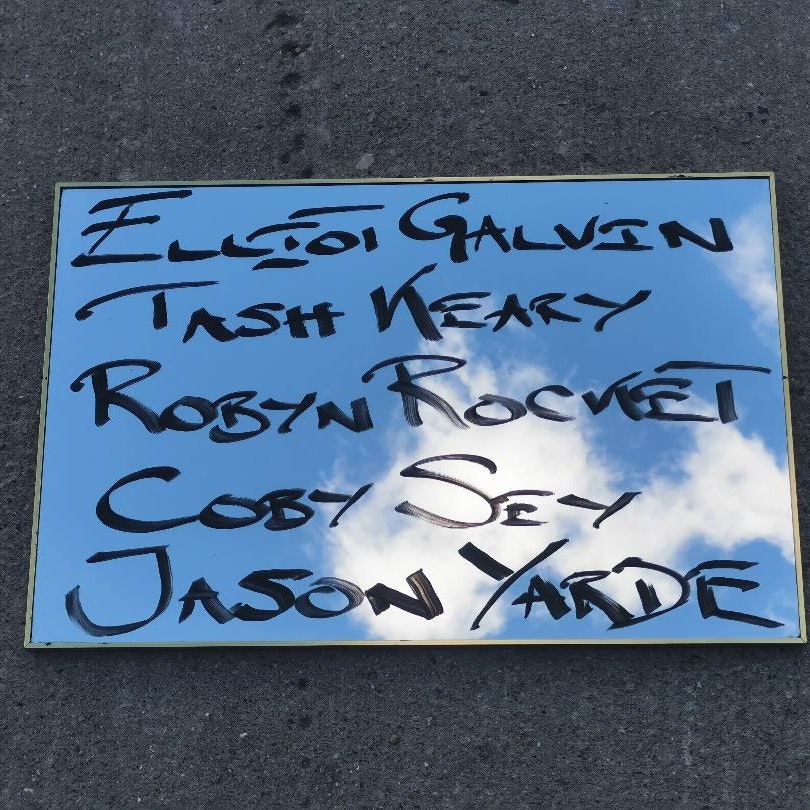 ELLIOT GALVIN
TASH KEARY
ROBYN ROCKET
COBY SEY
JASON YARDE